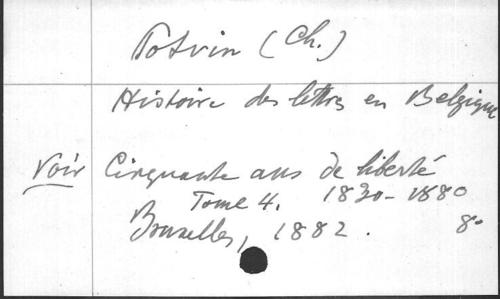 Potvin (Ch.)
Histoire des lettres en Belgique
Voir Cinquante ans de liberté
Tome 4. 1830-1880
Bruxelles, 1882. 8°